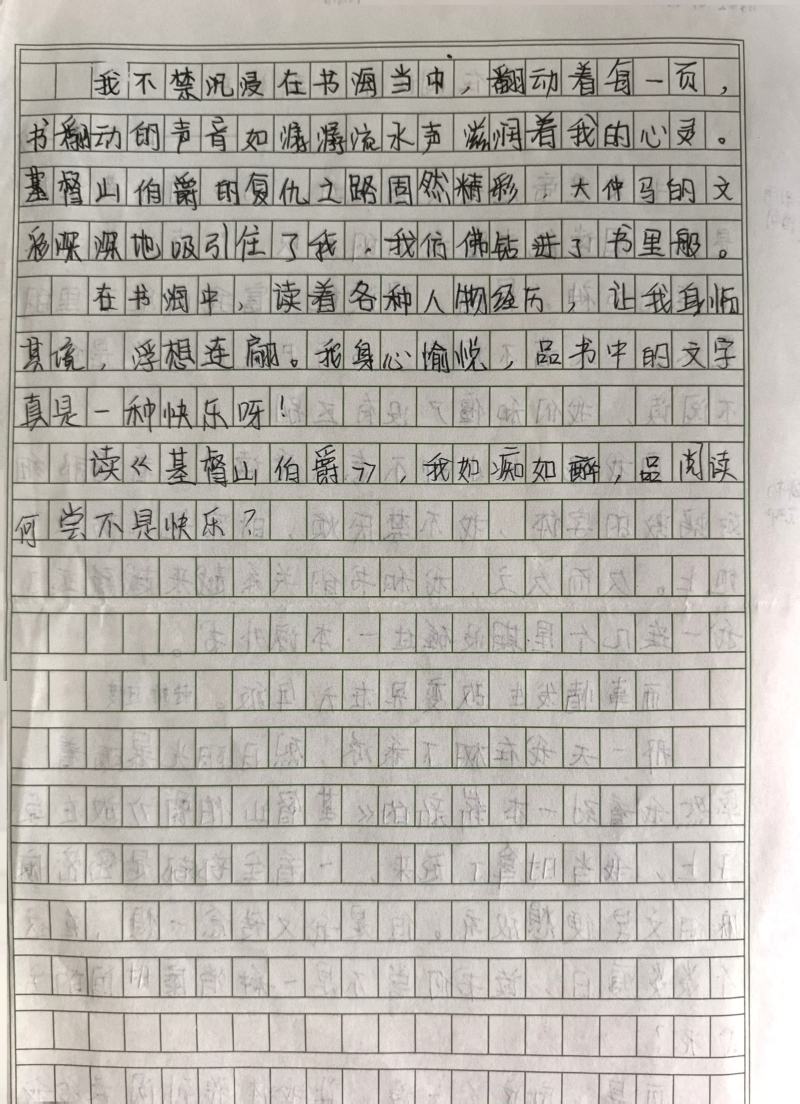 我不禁沉浸在书海当中，翻动着每一页，
书翻动的声音如潺潺流水声滋润着我的心灵。
基督山伯爵的复仇之路固然精彩，大仲马的文
彩深深地吸引住了我，我仿佛钻进了书里般。
在书海中，读着各种人物经历，让我身临
其境，浮想连翩。我身心愉悦，品书中的文字
真是一种快乐呀！
读《基督山伯爵》，我如痴如醉，品阅读
何尝不是快乐？